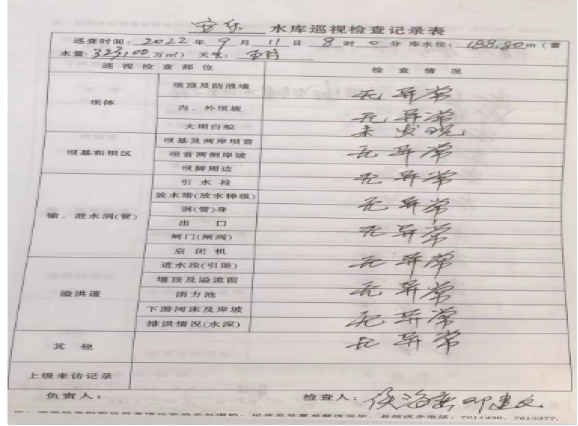 安乐 水库巡视检查记录表
巡查时间：2022年9月11日8时0分 库水位：158.80m（蓄
水量：323.00万m³）天气：
巡视检查部位 检查情况
坝体 坝顶及防浪墙 无异常
内、外坝坡 无异常
大坝白蚁 未发现
坝基和坝区 坝基及两岸坝营
坝首两侧岸坡 无异常
坝脚周边 无异常
输、泄水洞(管) 引水段
放水塔(放水梯级) 无异常
洞(管)身
出口 无异常
闸门(闸阀)
启闭机 无异常
溢洪道 进水段(引渠) 无异常
堰顶及溢流面
消力池 无异常
下游河床及岸坡
排洪情况(水深) 无异常
其他 无异常
上级来访记录
负责人： 检查人：